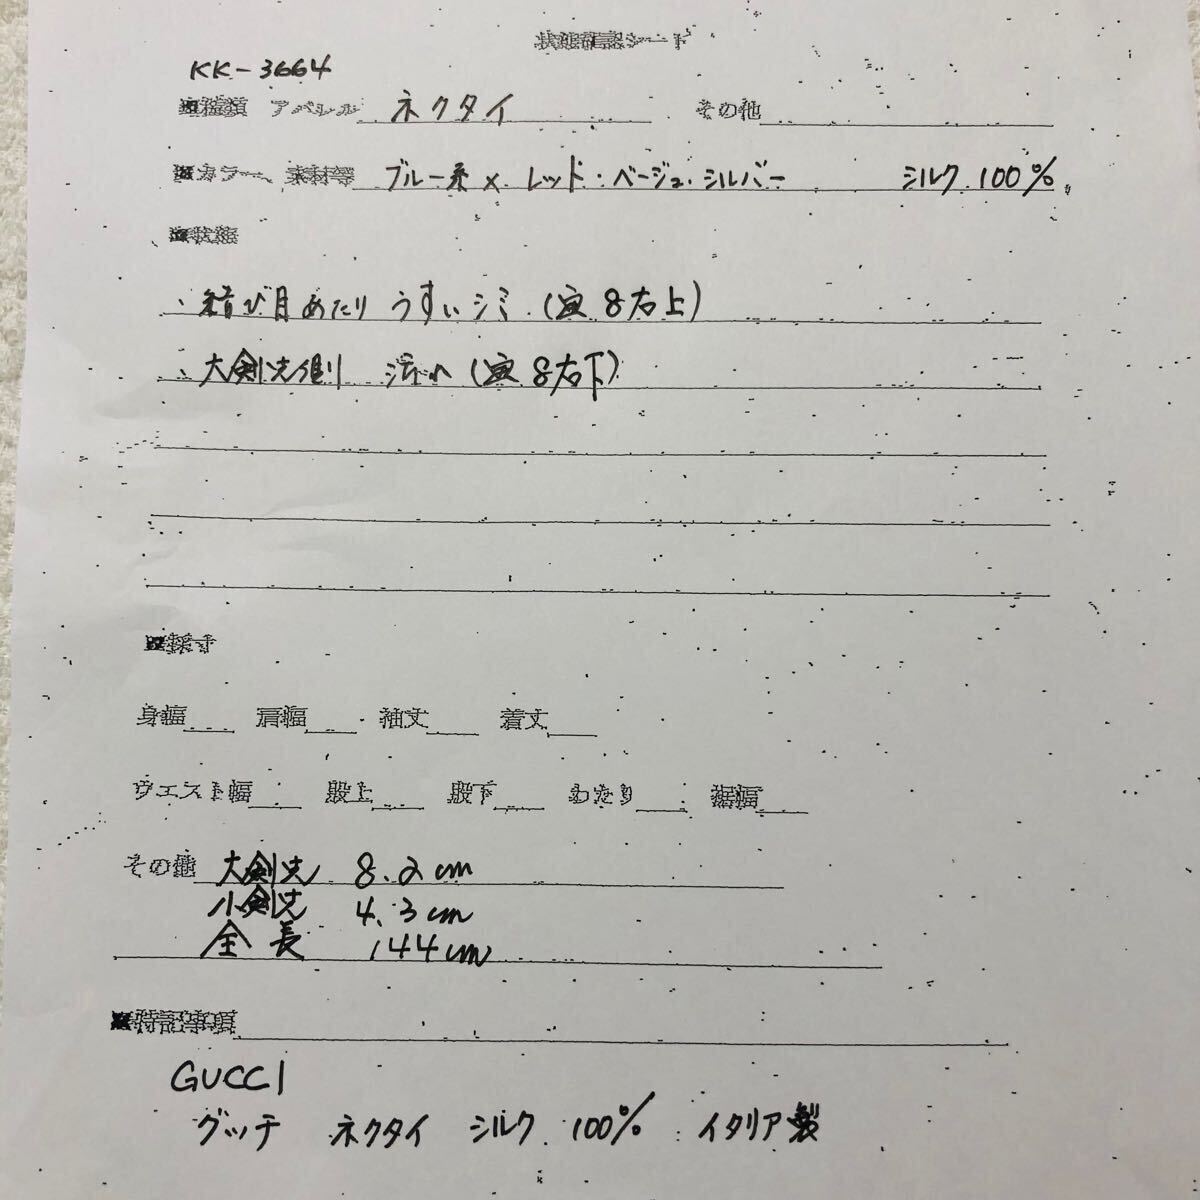 状態確認シート
KK-3664
■種類 アパレル ネクタイ その他
■カラー、素材等 ブルー系×レッド・ベージュ・シルバー シルク100%。
■状態
・結び目あたり うすいシミ(画8右上)
・大剣先側 汚れ(画8右下)
■採寸
身幅 肩幅 袖丈 着丈
ウエスト幅 股上 股下 わたり 裾幅
その他 大剣先 8.2cm
小剣先 4.3cm
全長 144cm
■特記事項
GUCCI
グッチ ネクタイ シルク100% イタリア製